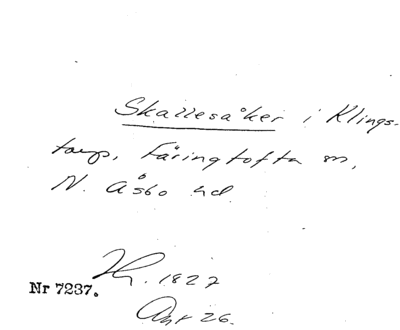 Skallesåker i Klings-
torp, Färingtofta sn,
N. Åsbo hd.
1827
Nr 7237.
Akt 26.